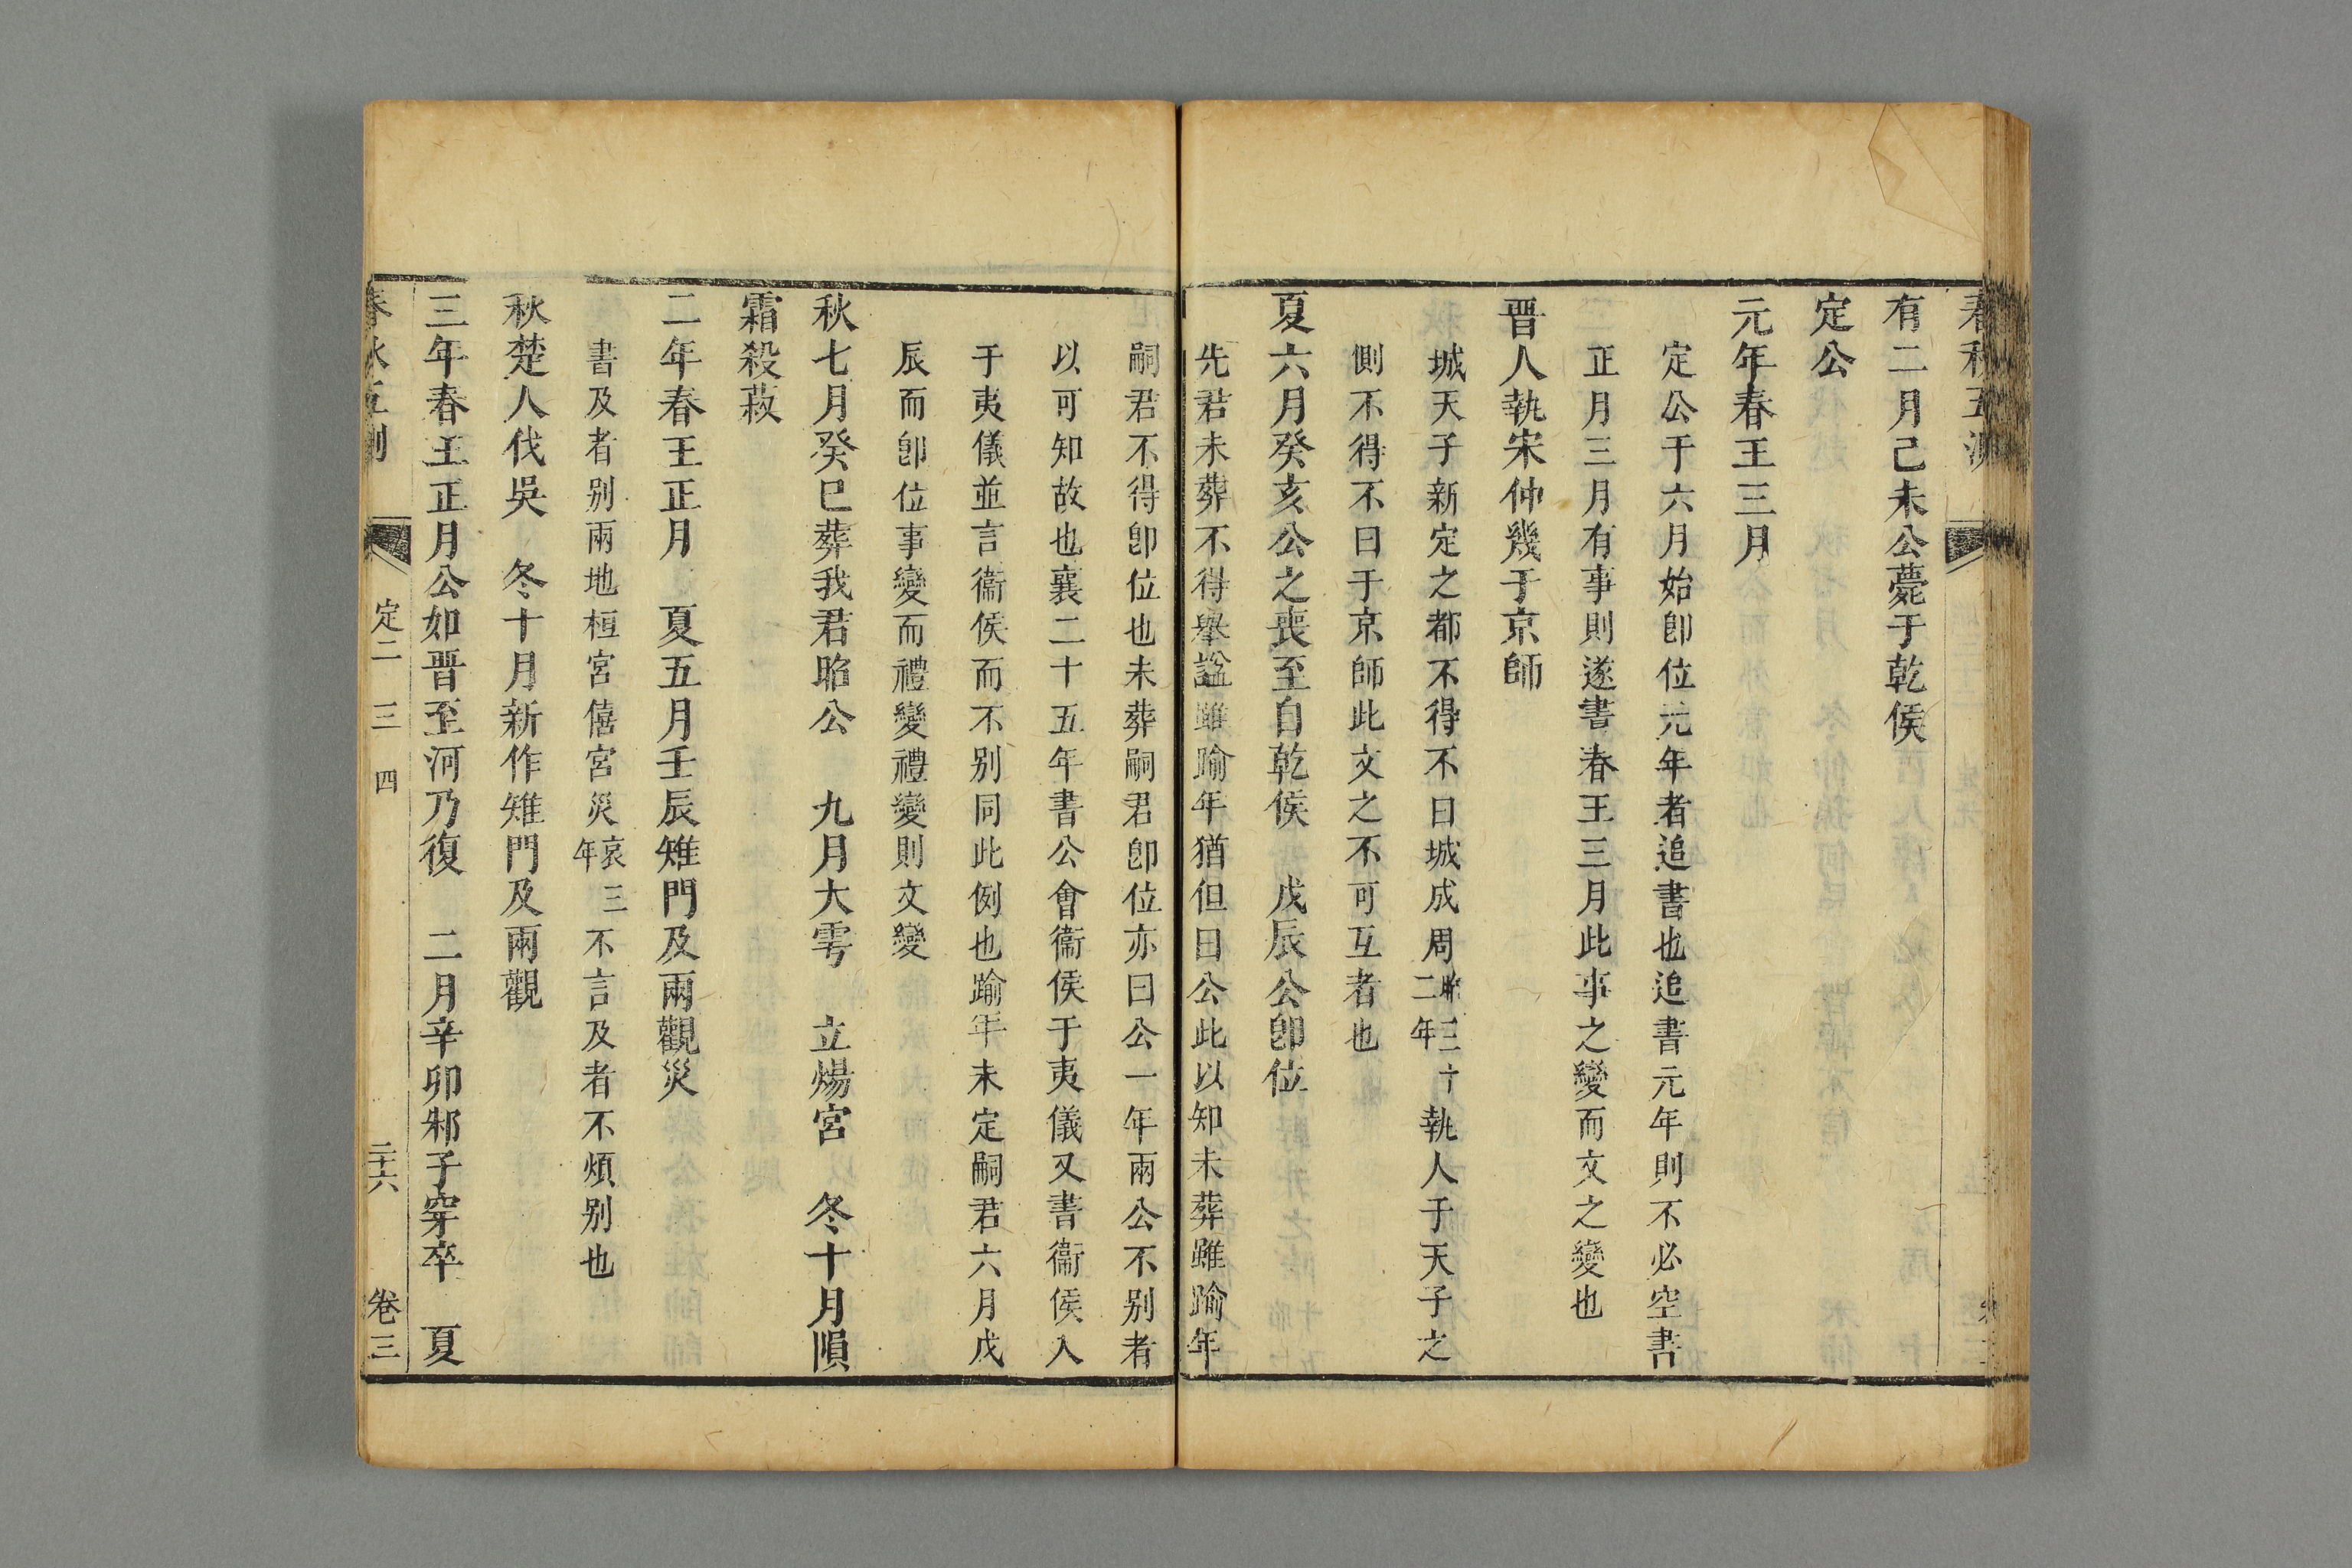 有二月己未公薨于乾侯
定公
元年春王三月
定公于六月始卽位元年者追書也追書元年則不必空書
正月三月有事則遂書春王三月此事之變而文之變也
晋人執宋仲幾于京師
城天子新定之都不得不日城成周昭三十二年執人于天子之
側不得不日于京師此文之不可互者也
夏六月癸亥公之喪至自乾侯　戊辰公卽位
先君未葬不得舉謚雖踰年猶但日公此以知未葬雖踰年
嗣君不得卽位也未葬嗣君卽位亦日公一年兩公不别者
以可知故也襄二十五年書公會衞侯于夷儀又書衞侯入
于夷儀並言衞侯而不别同此例也踰年未定嗣君六月戊
辰而卽位事變而禮變禮變則文變
秋七月癸巳葬我君昭公　九月大雩　立煬宮　冬十月隕
霜殺菽
二年春王正月　夏五月壬辰雉門及兩觀災
書及者别兩地桓宮僖宮災哀三年不言及者不煩别也
秋楚人伐吳　冬十月新作雉門及兩觀
三年春王正月公如晋至河乃復　二月辛卯邾子穿卒　夏
定二　三　四　二十六　卷三